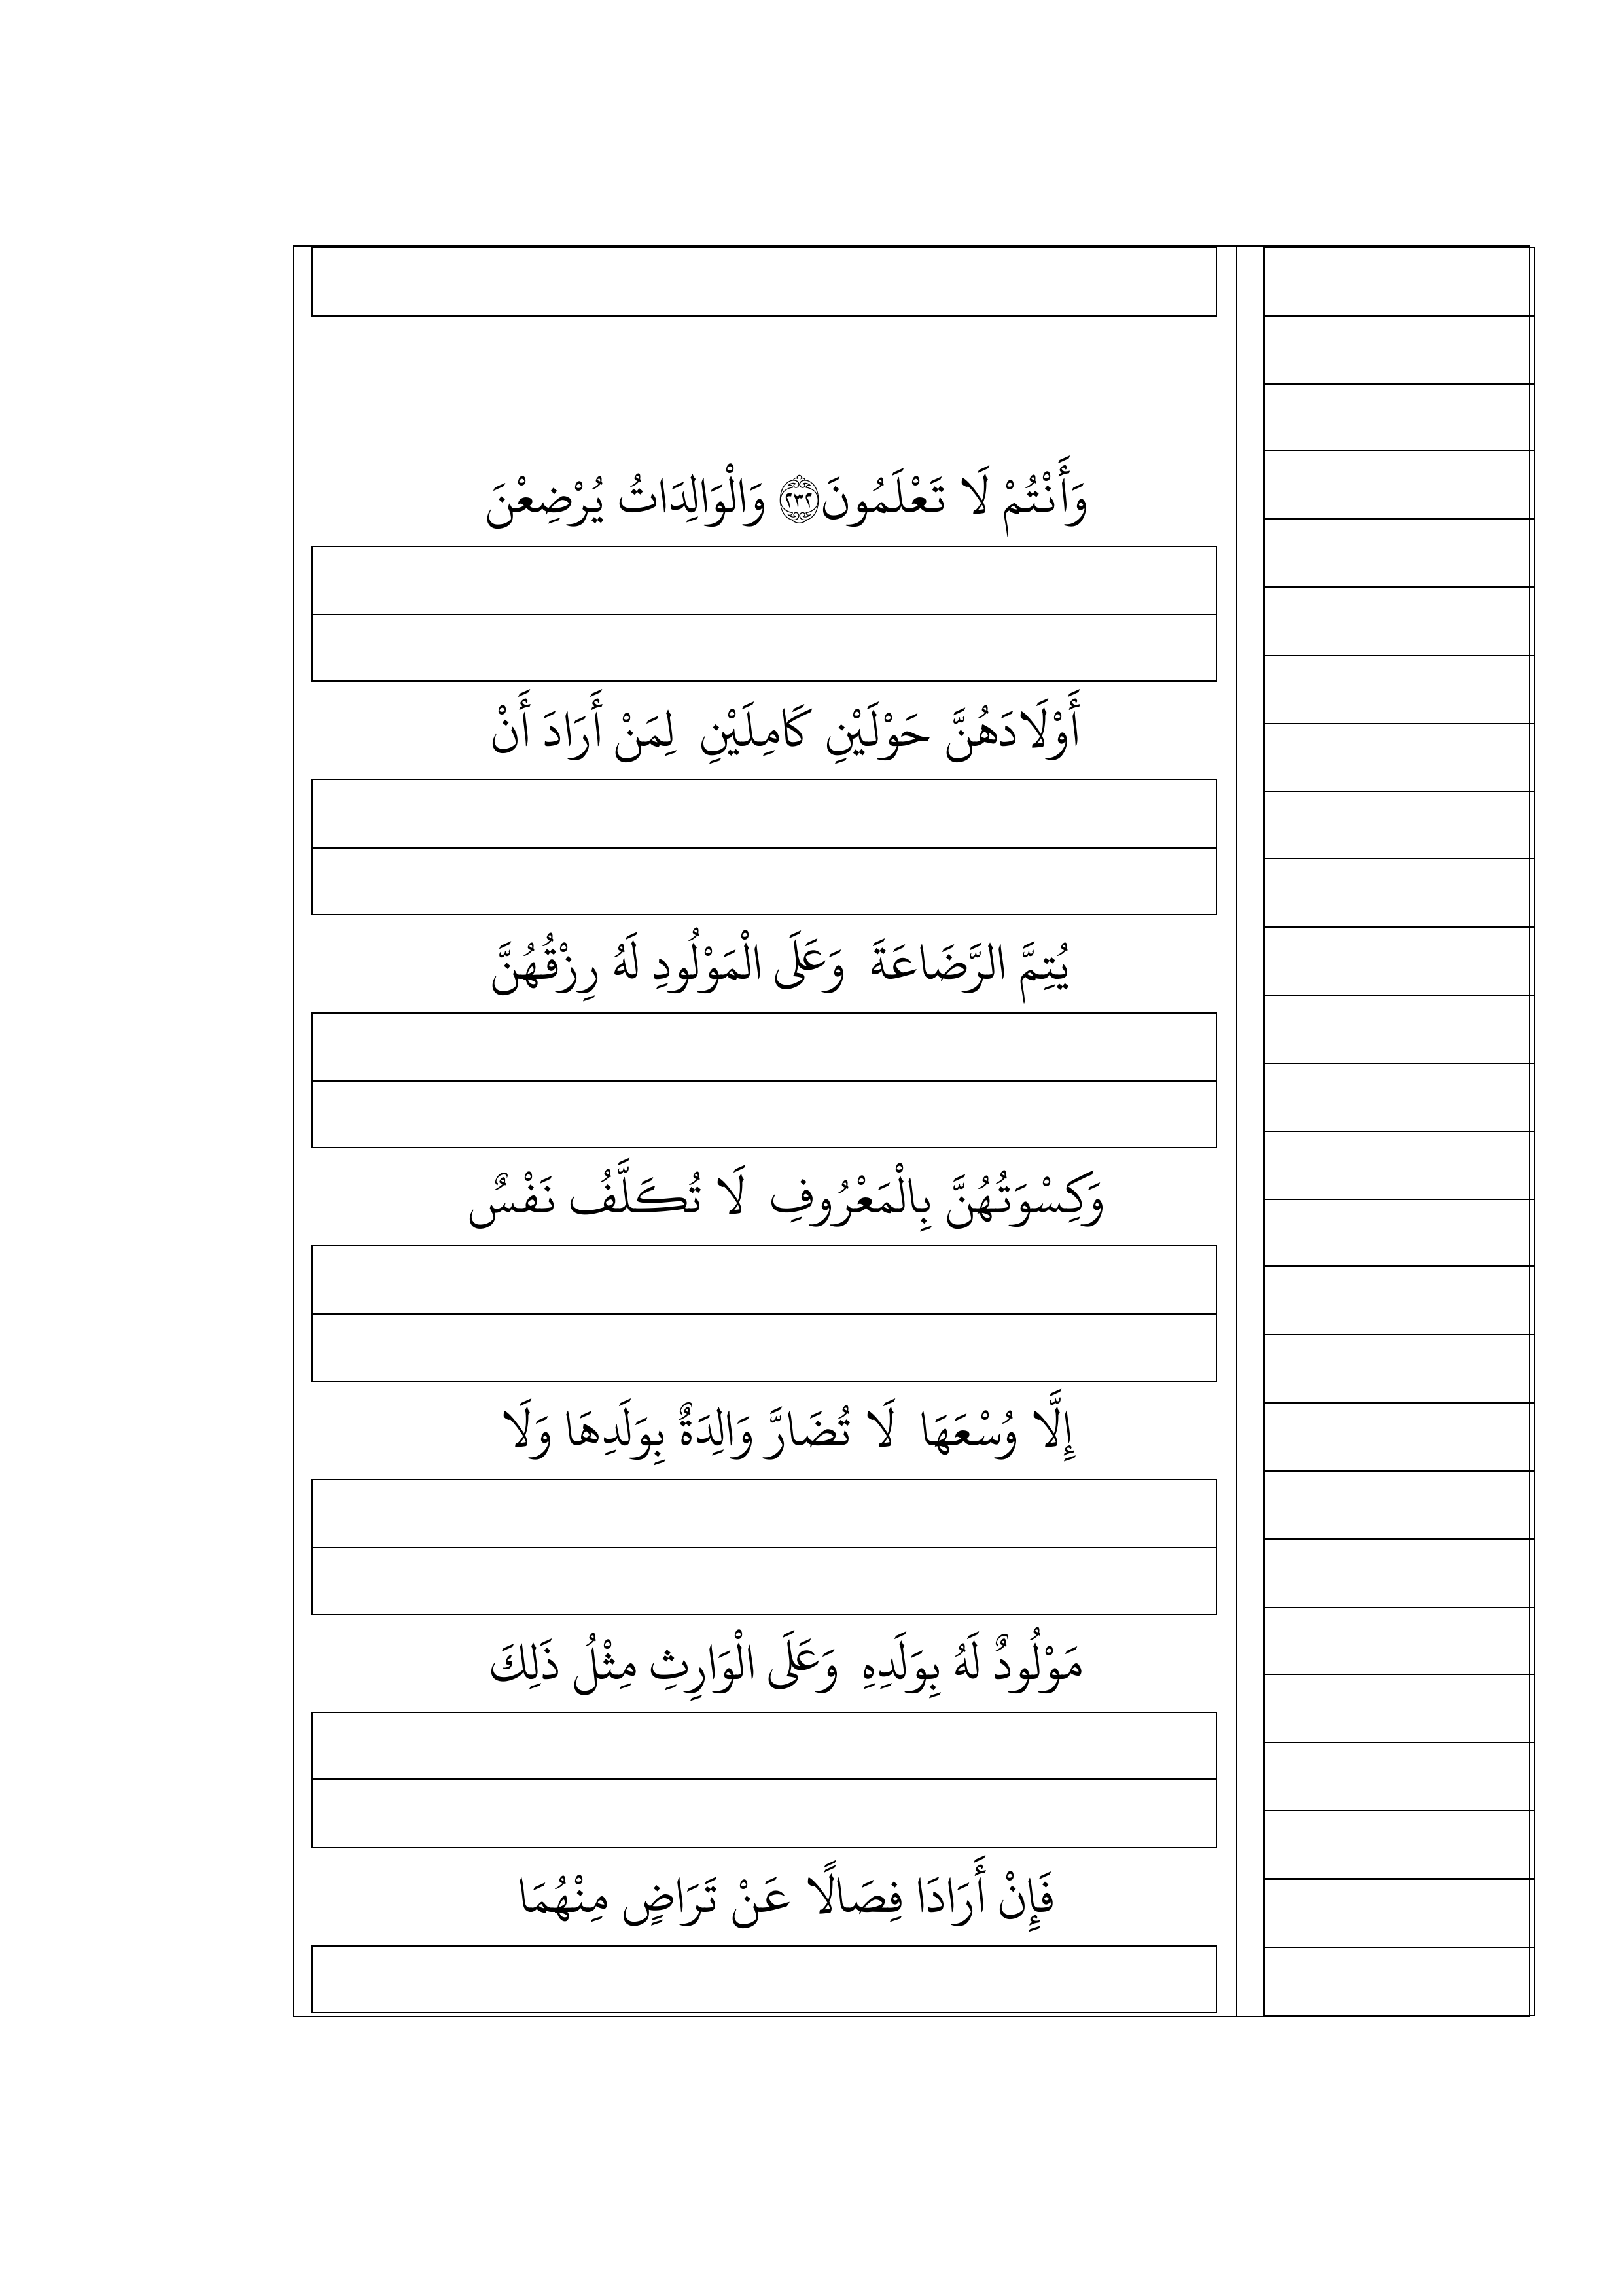 وَأَنْتُمْ لَا تَعْلَمُونَ ۝٢٣٢ وَالْوَالِدَاتُ يُرْضِعْنَ
أَوْلَادَهُنَّ حَوْلَيْنِ كَامِلَيْنِ لِمَنْ أَرَادَ أَنْ
يُتِمَّ الرَّضَاعَةَ وَعَلَى الْمَوْلُودِ لَهُ رِزْقُهُنَّ
وَكِسْوَتُهُنَّ بِالْمَعْرُوفِ لَا تُكَلَّفُ نَفْسٌ
إِلَّا وُسْعَهَا لَا تُضَارَّ وَالِدَةٌ بِوَلَدِهَا وَلَا
مَوْلُودٌ لَهُ بِوَلَدِهِ وَعَلَى الْوَارِثِ مِثْلُ ذَلِكَ
فَإِنْ أَرَادَا فِصَالًا عَنْ تَرَاضٍ مِنْهُمَا